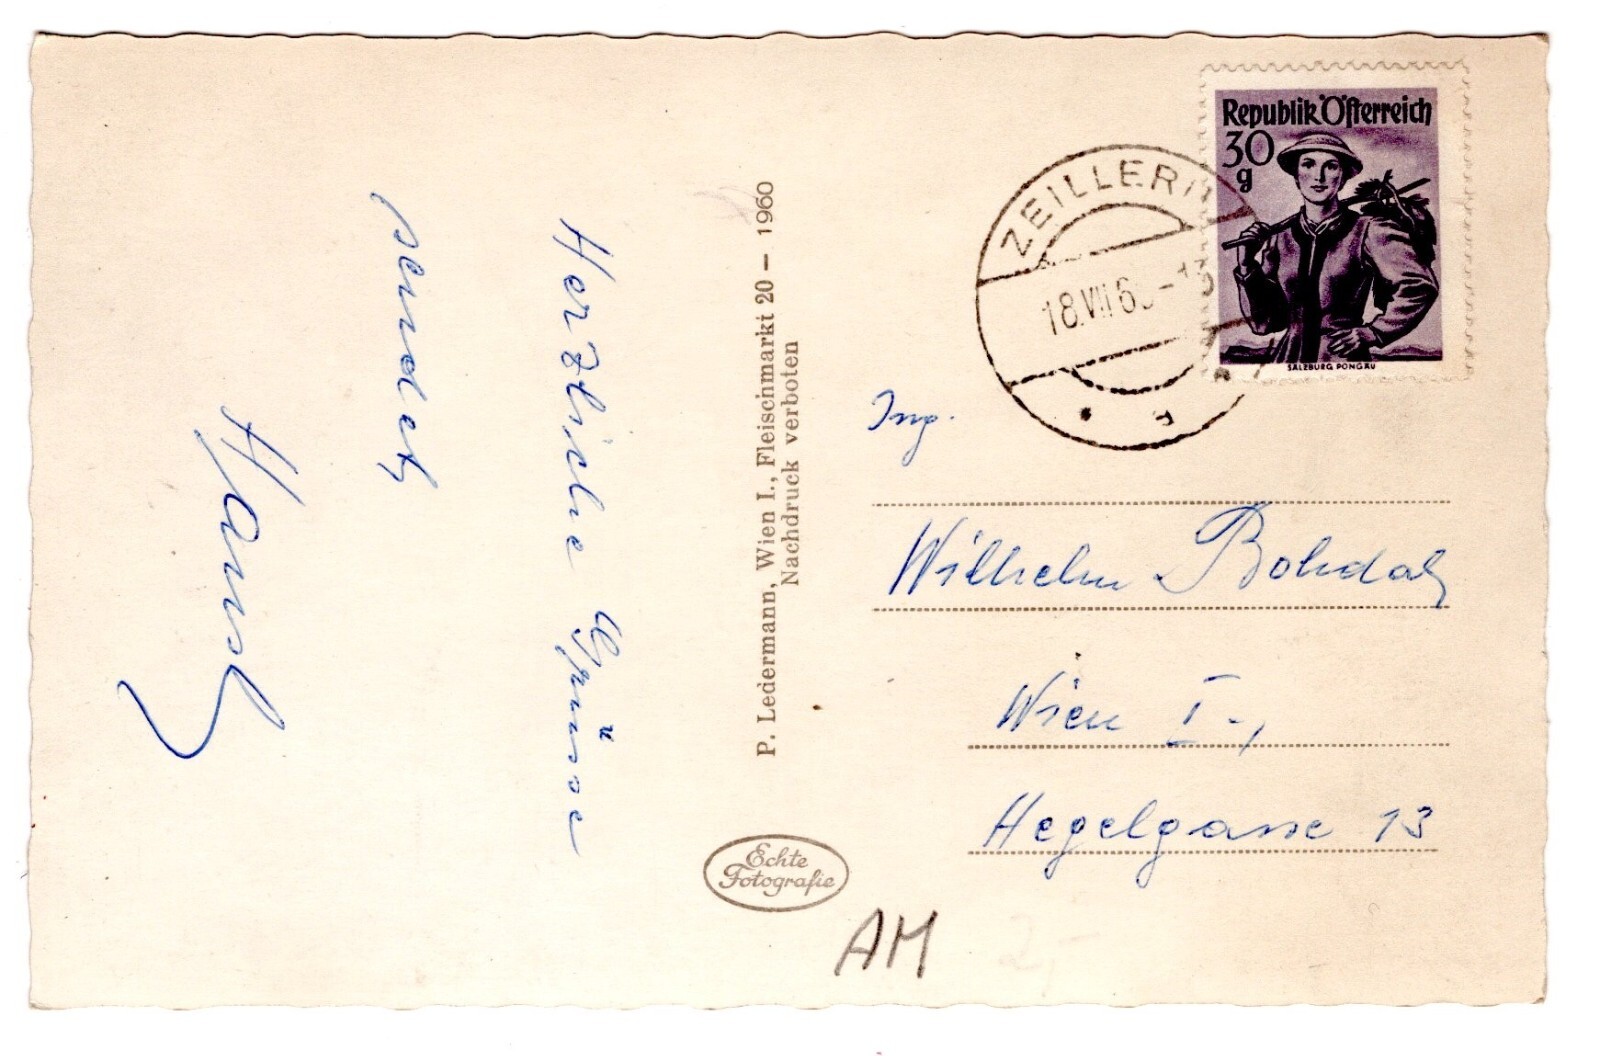 Herzliche Grüsse
sendet
Hansl
P. Ledermann, Wien I., Fleischmarkt 20 – 1960
Nachdruck verboten
Echte
Fotografie
Republik Österreich
30
g
SALZBURG PONGAU
ZEILLERN
18.VII.6 -13
Ing.
Wilhelm Bohdal
Wien I.,
Hegelgasse 13
AM
2,-